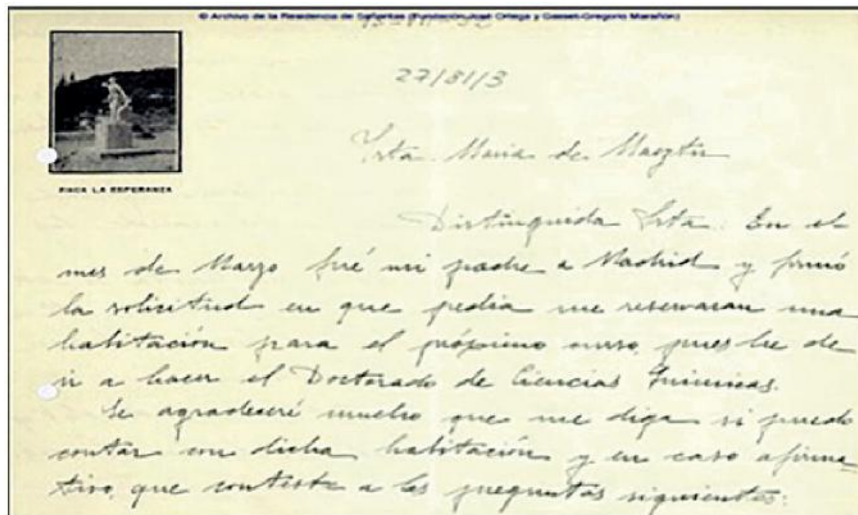 © Archivo de la Residencia de Señoritas (Fundación José Ortega y Gasset-Gregorio Marañón)
27/81/3
FINCA LA ESPERANZA
Srta. Maria de Maeztu
Distinguida Srta: En el
mes de Marzo fué mi padre a Madrid y firmó
la solicitud en que pedia me reservaran una
habitación para el próximo curso, pues he de
ir a hacer el Doctorado de Ciencias Quimicas.
Le agradeceré mucho que me diga si puedo
contar con dicha habitación y en caso afirma-
tivo, que conteste a las preguntas siguientes: